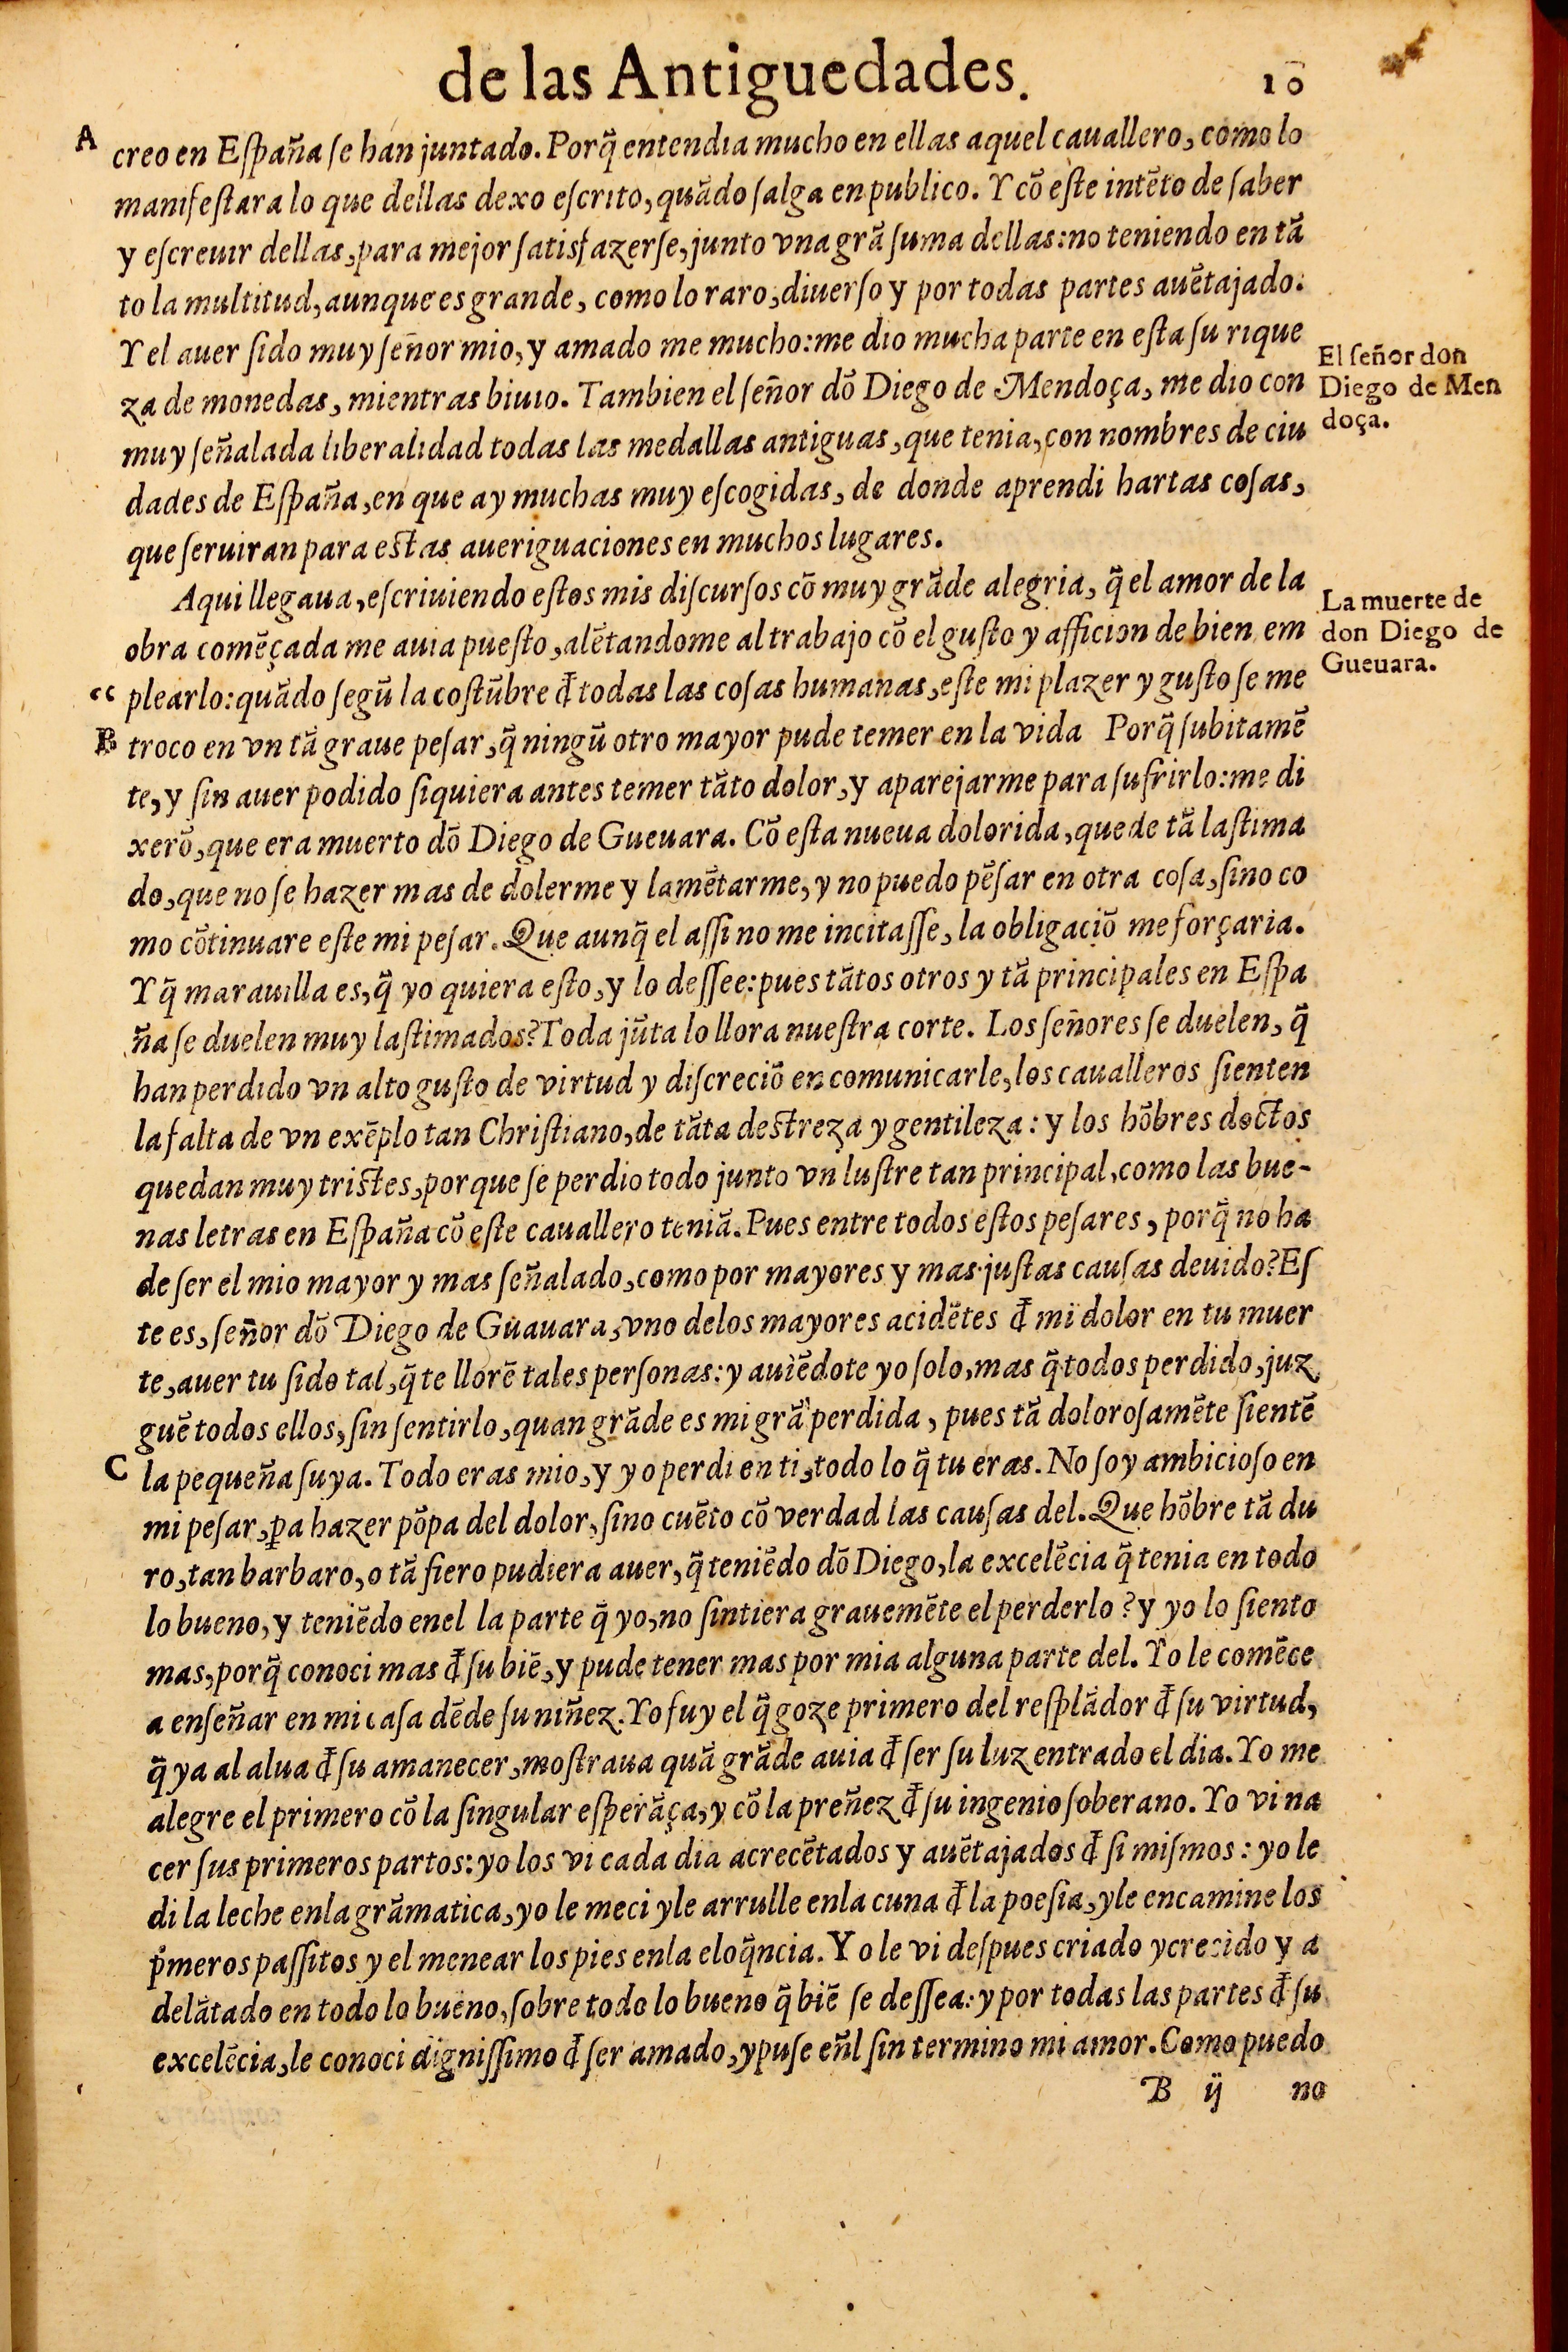 de las Antiguedades. 10
A creo en Eſpaña ſe han juntado. Porq̃ entendia mucho en ellas aquel cauallero, como lo
manifeſtara lo que dellas dexo eſcrito, quãdo ſalga en publico. Y cõ eſte intẽto de ſaber
y eſcreuir dellas, para mejor ſatisfazerſe, junto vna grã ſuma dellas: no teniendo en tã
to la multitud, aunque es grande, como lo raro, diuerſo y por todas partes auẽtajado.
Y el auer ſido muy ſeñor mio, y amado me mucho: me dio mucha parte en eſta ſu rique
za de monedas, mientras biuio. Tambien el ſeñor dõ Diego de Mendoça, me dio con
muy ſeñalada liberalidad todas las medallas antiguas, que tenia, con nombres de ciu
dades de Eſpaña, en que ay muchas muy eſcogidas, de donde aprendi hartas coſas,
que ſeruiran para eſtas aueriguaciones en muchos lugares.
El ſeñor don
Diego de Men
doça.
Aqui llegaua, eſcriuiendo eſtos mis diſcurſos cõ muy grãde alegria, q̃ el amor de la
obra comẽçada me auia pueſto, alẽtandome al trabajo cõ el guſto y afficion de bien em
“ plearlo: quãdo ſegũ la coſtũbre đ todas las coſas humanas, eſte mi plazer y guſto ſe me
B troco en vn tã graue peſar, q̃ ningũ otro mayor pude temer en la vida Porq̃ ſubitamẽ
te, y ſin auer podido ſiquiera antes temer tãto dolor, y aparejarme para ſufrirlo: me di
xerõ, que era muerto dõ Diego de Gueuara. Cõ eſta nueua dolorida, quede tã laſtima
do, que no ſe hazer mas de dolerme y lamẽtarme, y no puedo pẽſar en otra coſa, ſino co
mo cõtinuare eſte mi peſar. Que aunq̃ el aſſi no me incitaſſe, la obligaciõ me forçaria.
Y q̃ marauilla es, q̃ yo quiera eſto, y lo deſſee: pues tãtos otros y tã principales en Eſpa
ña ſe duelen muy laſtimados? Toda jũta lo llora nueſtra corte. Los ſeñores ſe duelen, q̃
han perdido vn alto guſto de virtud y diſcreciõ en comunicarle, los caualleros ſienten
la falta de vn exẽplo tan Chriſtiano, de tãta deſtreza y gentileza: y los hõbres doctos
quedan muy triſtes, porque ſe perdio todo junto vn luſtre tan principal, como las bue-
nas letras en Eſpaña cõ eſte cauallero teniã. Pues entre todos eſtos peſares, porq̃ no ha
de ſer el mio mayor y mas ſeñalado, como por mayores y mas juſtas cauſas deuido? Eſ
te es, ſeñor dõ Diego de Guauara, vno delos mayores acidẽtes đ mi dolor en tu muer
te, auer tu ſido tal, q̃ te llorẽ tales perſonas: y auiẽdote yo ſolo, mas q̃ todos perdido, juz
guẽ todos ellos, ſin ſentirlo, quan grãde es mi grã perdida, pues tã doloroſamẽte ſientẽ
C la pequeña ſuya. Todo eras mio, y yo perdi en ti, todo lo q̃ tu eras. No ſoy ambicioſo en
mi peſar, ꝑa hazer põpa del dolor, ſino cuẽto cõ verdad las cauſas del. Que hõbre tã du
ro, tan barbaro, o tã fiero pudiera auer, q̃ teniẽdo dõ Diego, la excelẽcia q̃ tenia en todo
lo bueno, y teniẽdo enel la parte q̃ yo, no ſintiera grauemẽte el perderlo? y yo lo ſiento
mas, porq̃ conoci mas đ ſu biẽ, y pude tener mas por mia alguna parte del. Yo le comẽce
a enſeñar en mi caſa dẽde ſu niñez. Yo fuy el q̃ goze primero del reſplãdor đ ſu virtud,
q̃ ya al alua đ ſu amanecer, moſtraua quã grãde auia đ ſer ſu luz entrado el dia. Yo me
alegre el primero cõ la ſingular eſperãça, y cõ la preñez đ ſu ingenio ſoberano. Yo vi na
cer ſus primeros partos: yo los vi cada dia acrecẽtados y auẽtajados đ ſi miſmos: yo le
di la leche enla grãmatica, yo le meci yle arrulle enla cuna đ la poeſia, yle encamine los
p̃meros paſſitos y el menear los pies enla eloq̃ncia. Yo le vi deſpues criado ycrecido y a
delãtado en todo lo bueno, ſobre todo lo bueno q̃ biẽ ſe deſſea: y por todas las partes đ ſu
excelẽcia, le conoci digniſſimo đ ſer amado, ypuſe eñl ſin termino mi amor. Como puedo
La muerte de
don Diego de
Gueuara.
B ij no